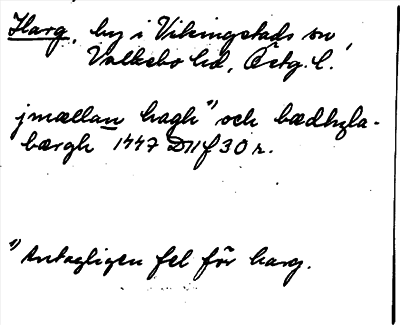 Harg, by i Vikingstads sn,
Valkebo hd, Östg. l.
jmællan hagh¹⁾ och bædhzla-
bærgh 1447 D11f 30 r.
¹⁾ Antagligen fel för harg.